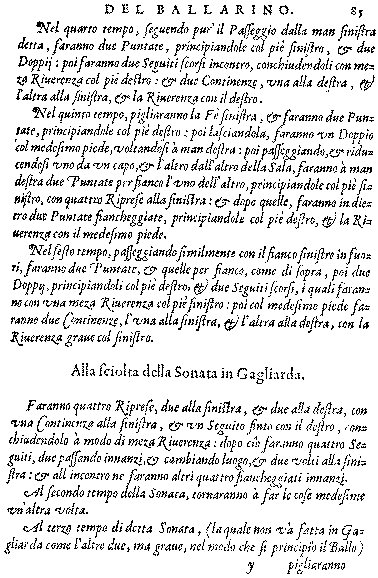 DEL BALLARINO. 85
Nel quarto tempo, seguendo pur'il Passeggio dalla man sinistra
detta, faranno due Puntate, principiandole col piè sinistro, & due
Doppij: poi faranno due Seguiti scorsi incontro, conchiudendoli con mez
za Riuerenza col piè destro: & due Continenze, vna alla destra, &
l'altra alla sinistra, & la Riuerenza con il destro.
Nel quinto tempo, pigliaranno la Fè sinistra, & faranno due Pun-
tate, principiandole col piè destro: poi lasciandola, faranno vn Doppio
col medesimo piede, voltandosi à man destra: poi passeggiando, & ridu-
cendosi vno da vn capo, & l'altro dall'altro della Sala, faranno à man
destra due Puntate per fianco l'vno dell'altro, principiandole col piè si-
nistro, con quattro Riprese alla sinistra: & dopo quelle, faranno in die-
tro due Puntate fiancheggiate, principiandole col piè destro, & la Ri
uerenza con il medesimo piede.
Nel sesto tempo, passeggiando similmente con il fianco sinistro in fuo-
ri, faranno due Puntate, & quelle per fianco, come di sopra, poi due
Doppij, principiandoli col piè destro, & due Seguiti scorsi, i quali faran-
no con vna meza Riuerenza col piè sinistro: poi col medesimo piede fa-
ranno due Continenze, l'vna alla sinistra, & l'altra alla destra, con la
Riuerenza graue col sinistro.
Alla sciolta della Sonata in Gagliarda.
Faranno quattro Riprese, due alla sinistra, & due alla destra, con
vna Continenza alla sinistra, & vn Seguito finto con il destro, con-
chiudendolo à modo di meza Riuerenza: dopo ciò faranno quattro Se-
guiti, due passando innanzi, & cambiando luogo, & due volti alla sini-
stra: & all'incontro ne faranno altri quattro fiancheggiati innanzi.
Al secondo tempo della Sonata, tornaranno à far le cose medesime
vn'altra volta.
Al terzo tempo di detta Sonata, (la quale non và fatta in Ga-
gliarda come l'altre due, ma graue, nel modo che si principiò il Ballo)
y pigliaranno